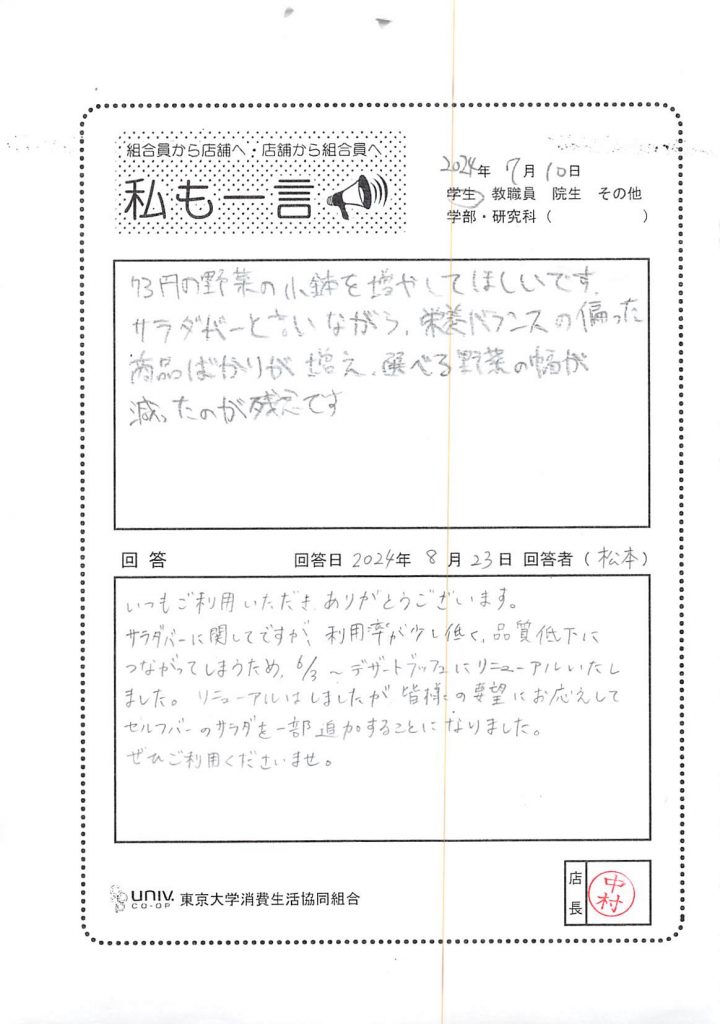 組合員から店舗へ・店舗から組合員へ
私も一言
2024年 7月 10日
学生 教職員 院生 その他
学部・研究科（　　　　　　）
73円の野菜の小鉢を増やしてほしいです。
サラダバーと言いながら、栄養バランスの偏った
商品ばかりが増え、選べる野菜の幅が
減ったのが残念です
回答 回答日 2024年 8月 23日 回答者（松本）
いつもご利用いただき、ありがとうございます。
サラダバーに関してですが、利用率が少し低く、品質低下に
つながってしまうため、6/3～デザートブッフェにリニューアルいたし
ました。リニューアルはしましたが皆様の要望にお応えして
セルフバーのサラダを一部追加することになりました。
ぜひご利用くださいませ。
UNIV. CO-OP 東京大学消費生活協同組合
店長 中村